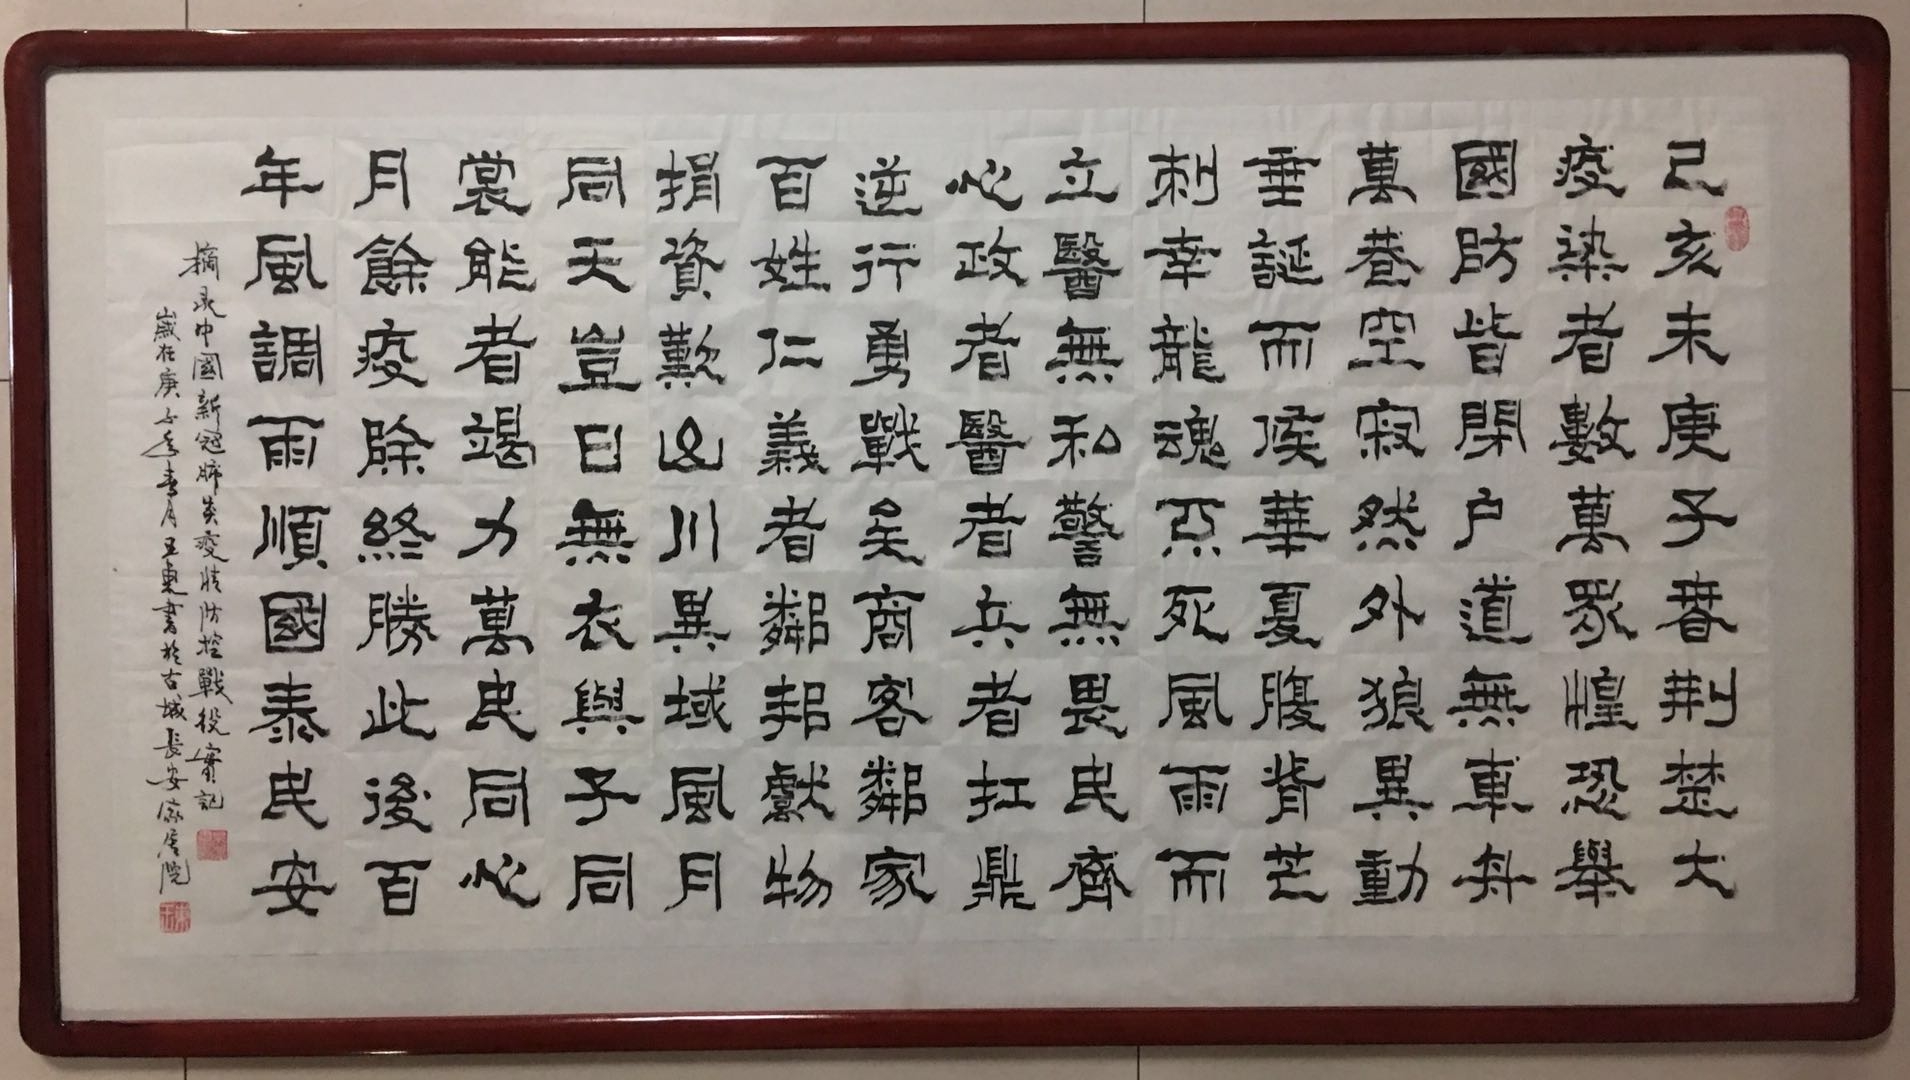 己亥末庚子春荆楚大
疫染者數萬眾惶恐舉
國防皆閉户道無車舟
萬巷空寂然外狼異動
垂誕而侯華夏腹背芒
刺幸龍魂不死風雨而
立醫無私警無畏民齊
心政者醫者兵者扛鼎
逆行勇戰矣商客鄰家
百姓仁義者鄰邦獻物
捐資歎山川異域風月
同天豈曰無衣與子同
裳能者竭力萬民同心
月餘疫除終勝此後百
年風調雨順國泰民安
摘录中國新冠肺炎疫情防控戰役實記
歲在庚子年春月王東書於古城長安